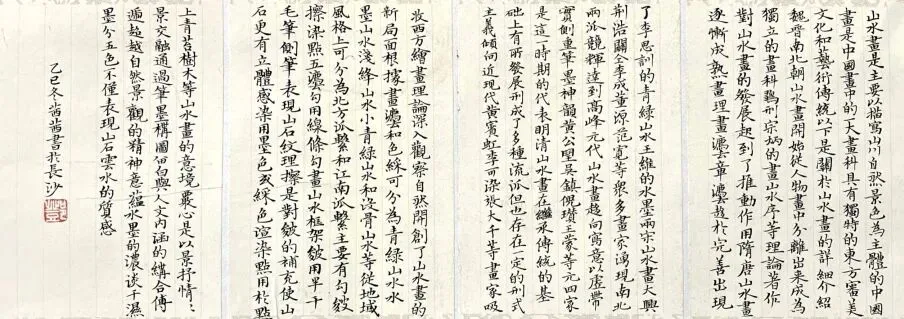 山水畫是主要以描寫山川自然景色為主體的中國
畫是中國畫中的大畫科具有獨特的東方審美
文化和藝術傳統以下是關於山水畫的詳細介紹
魏晉南北朝山水畫開始從人物畫中分離出來成為
獨立的畫科魏形宗炳的畫山水序等理論著作
對山水畫的發展起到了推動作用隋唐山水畫
逐漸成熟畫理畫灋章灋趨於完善出現
了李思訓的青綠山水王維的水墨兩宋山水畫大興
荆浩關仝李成董源范寬等衆多畫家湧現南北
兩派競輝達到高峰元代山水畫趨向寫意以虛帶
實側重筆墨神韻黃公望吳鎮倪瓚王蒙等元四家
是這一時期的代表明清山水畫在繼承傳統的基
础上有所發展形成了多種流派但也存在一定的形式
主義傾向近現代黃賓虹李可染張大千等畫家吸
收西方繪畫理論深入觀察自然開創了山水畫的
新局面根據畫灋和色綵可分為青綠山水水
墨山水淺絳山水小青綠山水和沒骨山水等從地域
風格上可分為北方派繫和江南派繫主要有勾皴
擦染點五灋勾用線條勾畫山水框架皴用半干
毛筆側筆表現山石紋理擦是對皴的補充使山
石更有立體感染用墨色或綵色渲染點用於點
上青苔樹木等山水畫的意境覈心是以景抒情：
景交融通過筆墨構圖留白與人文内涵的結合傳
遞超越自然景觀的精神意蘊水墨的濃淡干濕
墨分五色不僅表現山石雲水的質感
乙巳冬茜茜書於長沙